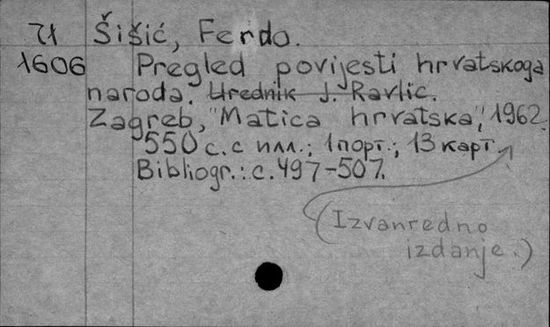 21 Šišić, Ferdo.
1606 Pregled povijesti hrvatskoga
naroda. Urednik J. Ravlić.
Zagreb, "Matica hrvatska", 1962.
550 с. с илл.; 1 порт.; 13 карт.
Bibliogr.: с. 497-507.
(Izvanredno
izdanje.)